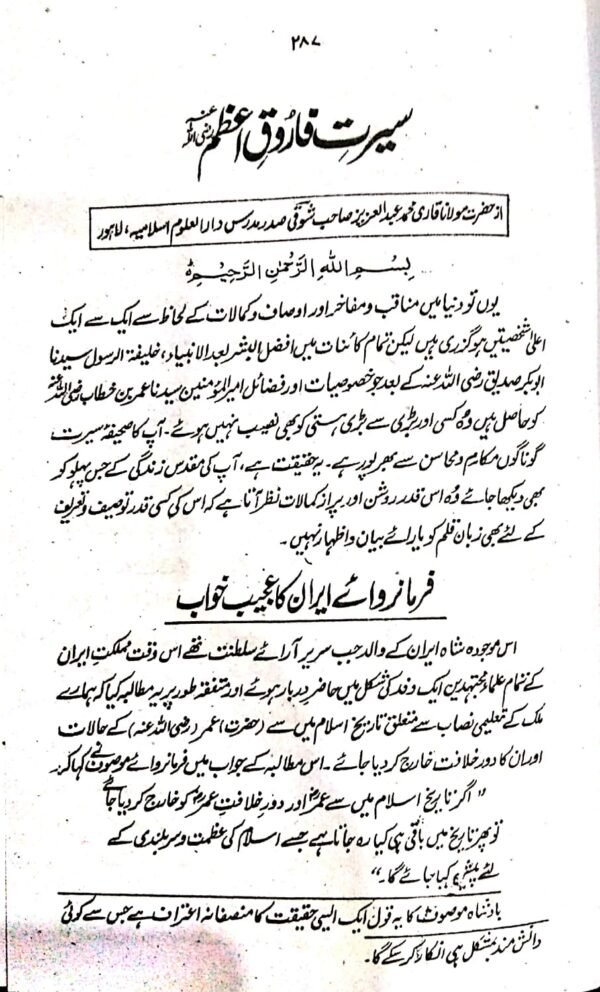 ۲۸۷
سیرتِ فارُوقِ اعظم رضی اللہ عنہ
از حضرت مولانا قاری محمد عبدالعزیز صاحب شوقی صدر مدرس دارالعلوم اسلامیہ، لاہور
بِسْمِ اللهِ الرَّحْمٰنِ الرَّحِیْمِ
یوں تو دنیا میں مناقب و مفاخر اور اوصاف و کمالات کے لحاظ سے ایک سے ایک
اعلیٰ شخصیتیں ہو گزری ہیں لیکن تمام کائنات میں افضل البشر بعد الانبیاء، خلیفۃ الرسول سیدنا
ابوبکر صدیق رضی اللہ عنہ کے بعد جو خصوصیات اور فضائل امیرالمؤمنین سیدنا عمر بن خطاب رضی اللہ عنہ
کو حاصل ہیں وُہ کسی اور بڑی سے بڑی ہستی کو بھی نصیب نہیں ہوئے۔ آپ کا صحیفۂ سیرت
گوناگوں مکارم و محاسن سے بھرپور ہے۔ یہ حقیقت ہے، آپ کی مقدس زندگی کے جس پہلو کو
بھی دیکھا جائے وُہ اس قدر روشن اور پُر از کمالات نظر آتا ہے کہ اس کی کسی قدر توصیف و تعریف
کے لئے بھی زبانِ قلم کو یارائے بیان و اظہار نہیں۔
فرمانروائے ایران کا عجیب خواب
اس موجودہ شاہ ایران کے والد جب سریر آرائے سلطنت تھے اس وقت مملکتِ ایران
کے تمام علماءِ مجتہدین ایک وفد کی شکل میں حاضرِ دربار ہوئے اور متفقہ طور پر یہ مطالبہ کیا کہ ہمارے
ملک کے تعلیمی نصاب سے متعلق تاریخ اسلام میں سے (حضرت) عمر (رضی اللہ عنہ) کے حالات
اور ان کا دورِ خلافت خارج کر دیا جائے۔ اس مطالبہ کے جواب میں فرمانروائے موصوف نے کہا کہ:
"اگر تاریخ اسلام میں سے عمرؓ اور دورِ خلافتِ عمرؓ کو خارج کر دیا جائے
تو پھر تاریخ میں باقی ہی کیا رہ جاتا ہے جسے اسلام کی عظمت و سربلندی کے
لئے پیش کیا جائے گا۔"
بادشاہ موصوف کا یہ قول ایک ایسی حقیقت کا منصفانہ اعتراف ہے جس سے کوئی
دانش مند بمشکل ہی انکار کر سکے گا۔